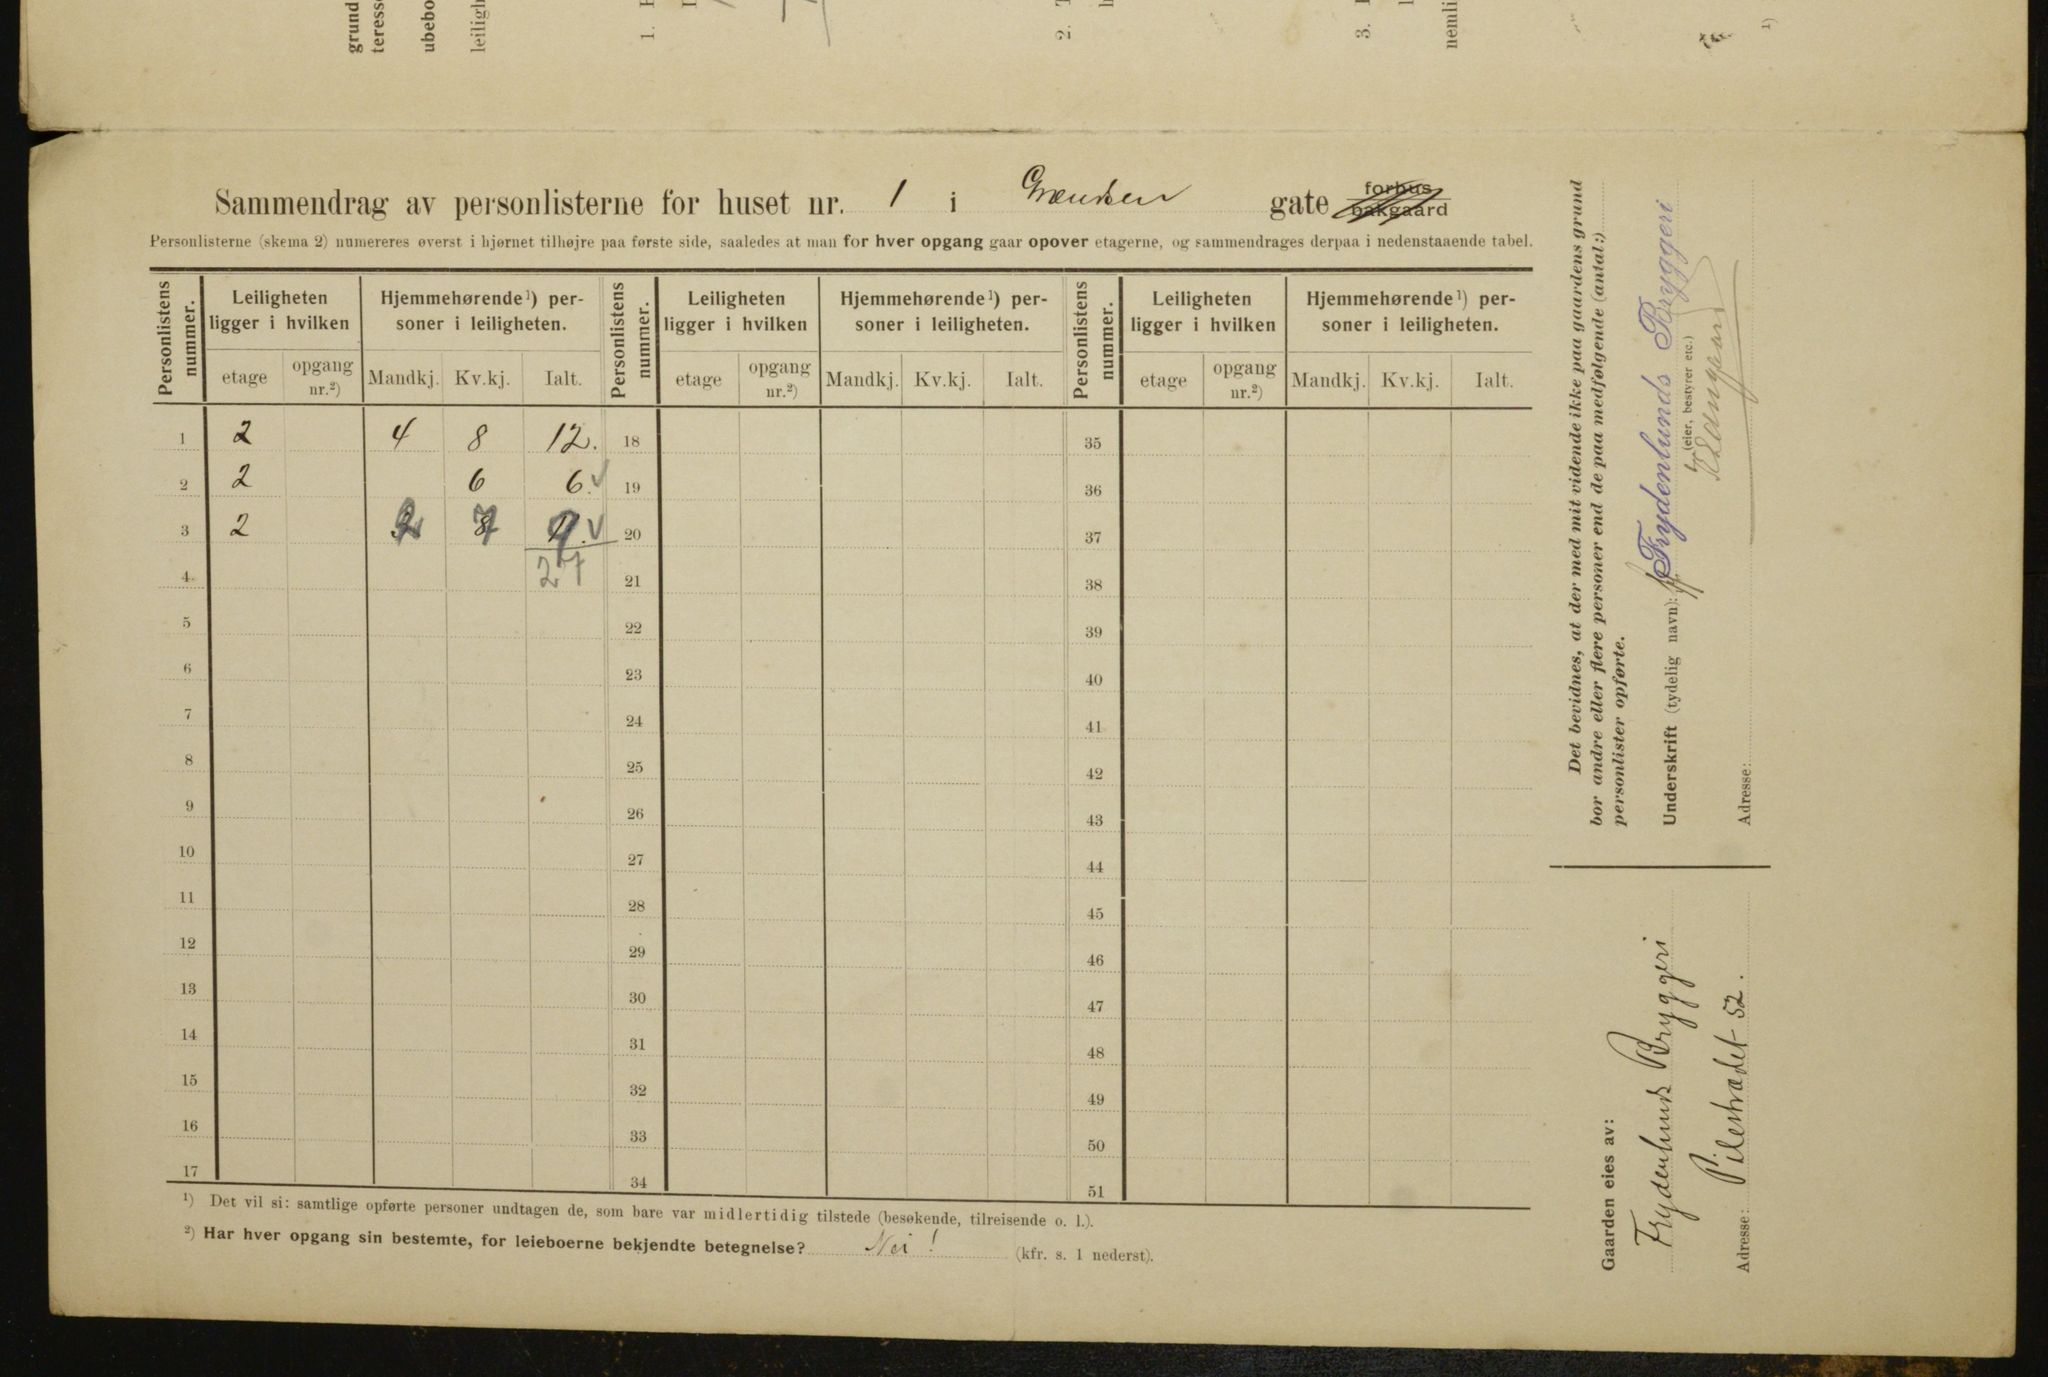 grund
teresse
ubebo
leiligh
1.
2.
3.
nemli
1)
Sammendrag av personlisterne for huset nr. 1 i Grændsen gate forhus bakgaard
Personlisterne (skema 2) numereres øverst i hjørnet tilhøjre paa første side, saaledes at man for hver opgang gaar opover etagerne, og sammendrages derpaa i nedenstaaende tabel.
Personlistens nummer. Leiligheten ligger i hvilken Hjemmehørende 1) personer i leiligheten. Personlistens nummer. Leiligheten ligger i hvilken Hjemmehørende 1) personer i leiligheten. Personlistens nummer. Leiligheten ligger i hvilken Hjemmehørende 1) personer i leiligheten.
etage opgang nr.2) Mandkj. Kv.kj. Ialt. etage opgang nr.2) Mandkj. Kv.kj. Ialt. etage opgang nr.2) Mandkj. Kv.kj. Ialt.
1 2 4 8 12. 18 35
2 2 6 6. 19 36
3 2 2 7 9 20 37
4 27 21 38
5 22 39
6 23 40
7 24 41
8 25 42
9 26 43
10 27 44
11 28 45
12 29 46
13 30 47
14 31 48
15 32 49
16 33 50
17 34 51
1) Det vil si: samtlige opførte personer undtagen de, som bare var midlertidig tilstede (besøkende, tilreisende o. l.).
2) Har hver opgang sin bestemte, for leieboerne bekjendte betegnelse? Nei! (kfr. s. 1 nederst).
Det bevidnes, at der med mit vidende ikke paa gaardens grund
bor andre eller flere personer end de paa medfølgende (antal:)
personlister opførte.
Underskrift (tydelig navn): Frydenlunds Bryggeri
(eier, bestyrer etc.)
Adresse:
Gaarden eies av:
Frydenlunds Bryggeri
Adresse: Pilestrædet 52.